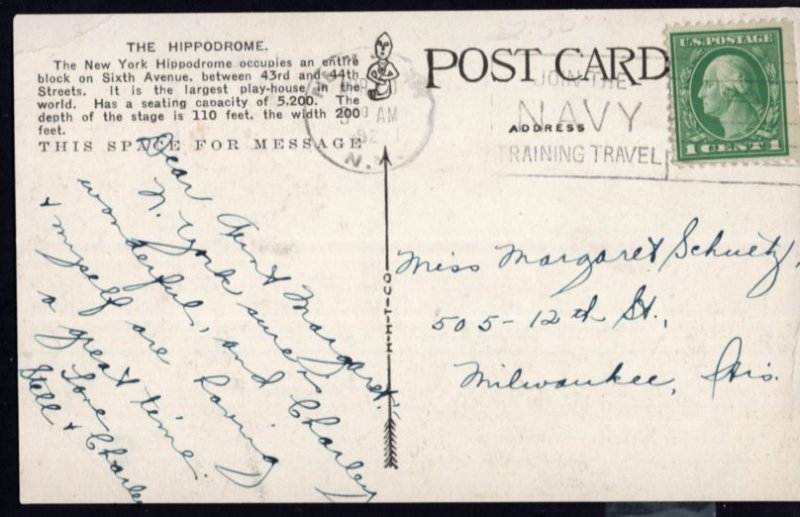 THE HIPPODROME.
The New York Hippodrome occupies an entire
block on Sixth Avenue, between 43rd and 44th
Streets. It is the largest play-house in the
world. Has a seating capacity of 5,200. The
depth of the stage is 110 feet, the width 200
feet.
THIS SPACE FOR MESSAGE
Dear Aunt Margaret:
N. York sure is
wonderful, and Charley
+ myself are having
a great time.
Love
Stell + Charley
M-H-T-CO
POST CARD
ADDRESS
AM
N.Y.
JOIN THE
NAVY
TRAINING TRAVEL
U.S. POSTAGE
1 CENT 1
Miss Margaret Schuetz,
505-12th St.,
Milwaukee, Wis.